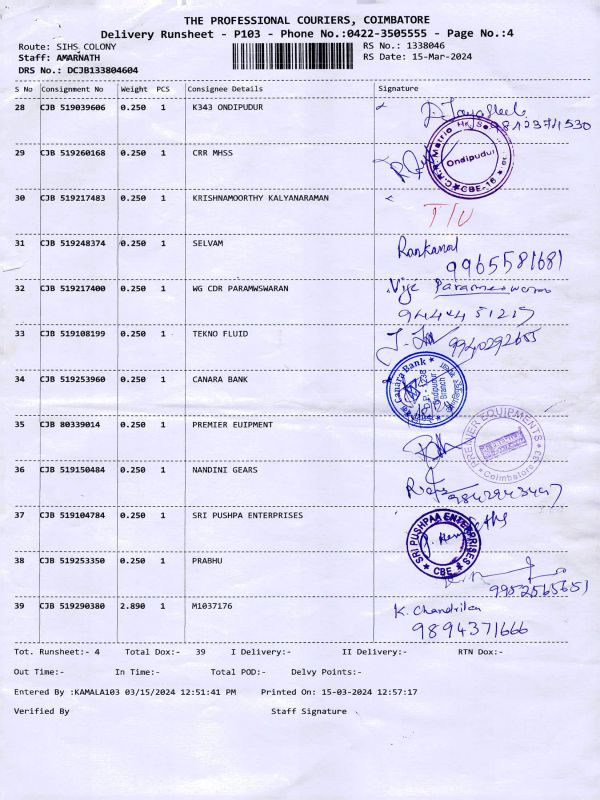 THE PROFESSIONAL COURIERS, COIMBATORE
Delivery Runsheet - P103 - Phone No.:0422-3505555 - Page No.:4
Route: SIHS COLONY
RS No.: 1338046
Staff: AMARNATH
RS Date: 15-Mar-2024
DRS No.: DCJB133804604
S No Consignment No Weight PCS Consignee Details Signature
28 CJB 519039606 0.250 1 K343 ONDIPUDUR
29 CJB 519260168 0.250 1 CRR MHSS
Ondipudur
CBE-16
30 CJB 519217483 0.250 1 KRISHNAMOORTHY KALYANARAMAN
31 CJB 519248374 0.250 1 SELVAM
9965581681
32 CJB 519217400 0.250 1 WG CDR PARAMWSWARAN
33 CJB 519108199 0.250 1 TEKNO FLUID
9940292655
34 CJB 519253960 0.250 1 CANARA BANK
Canara Bank
Ondipudur
Branch
35 CJB 80339014 0.250 1 PREMIER EUIPMENT
PREMIER EQUIPMENTS
Coimbatore-33
36 CJB 519150484 0.250 1 NANDINI GEARS
37 CJB 519104784 0.250 1 SRI PUSHPA ENTERPRISES
SRI PUSHPAA ENTERPRISES
CBE
38 CJB 519253350 0.250 1 PRABHU
9952565651
39 CJB 519290380 2.890 1 M1037176
9894371666
Tot. Runsheet:- 4 Total Dox:- 39 I Delivery:- II Delivery:- RTN Dox:-
Out Time:- In Time:- Total POD:- Delvy Points:-
Entered By :KAMALA103 03/15/2024 12:51:41 PM Printed On: 15-03-2024 12:57:17
Verified By Staff Signature